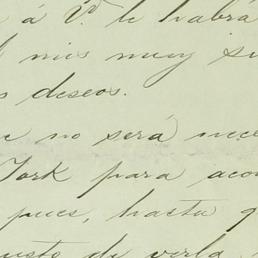 á Vd. le habrá
mis muy si
s deseos.
no será nece
York para aco
pues, hasta q
usto de verla